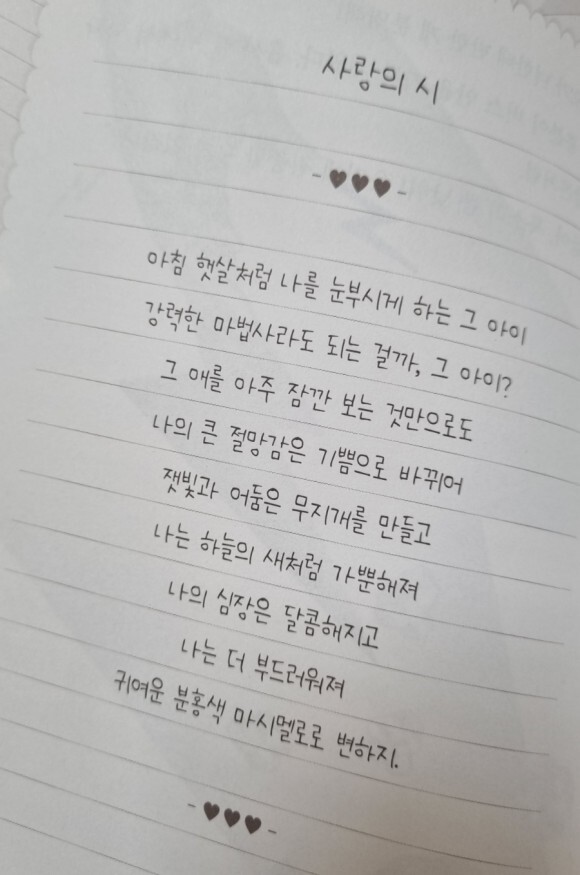 사랑의 시
-♥♥♥-
아침 햇살처럼 나를 눈부시게 하는 그 아이
강력한 마법사라도 되는 걸까, 그 아이?
그 애를 아주 잠깐 보는 것만으로도
나의 큰 절망감은 기쁨으로 바뀌어
잿빛과 어둠은 무지개를 만들고
나는 하늘의 새처럼 가뿐해져
나의 심장은 달콤해지고
나는 더 부드러워져
귀여운 분홍색 마시멜로로 변하지.
-♥♥♥-